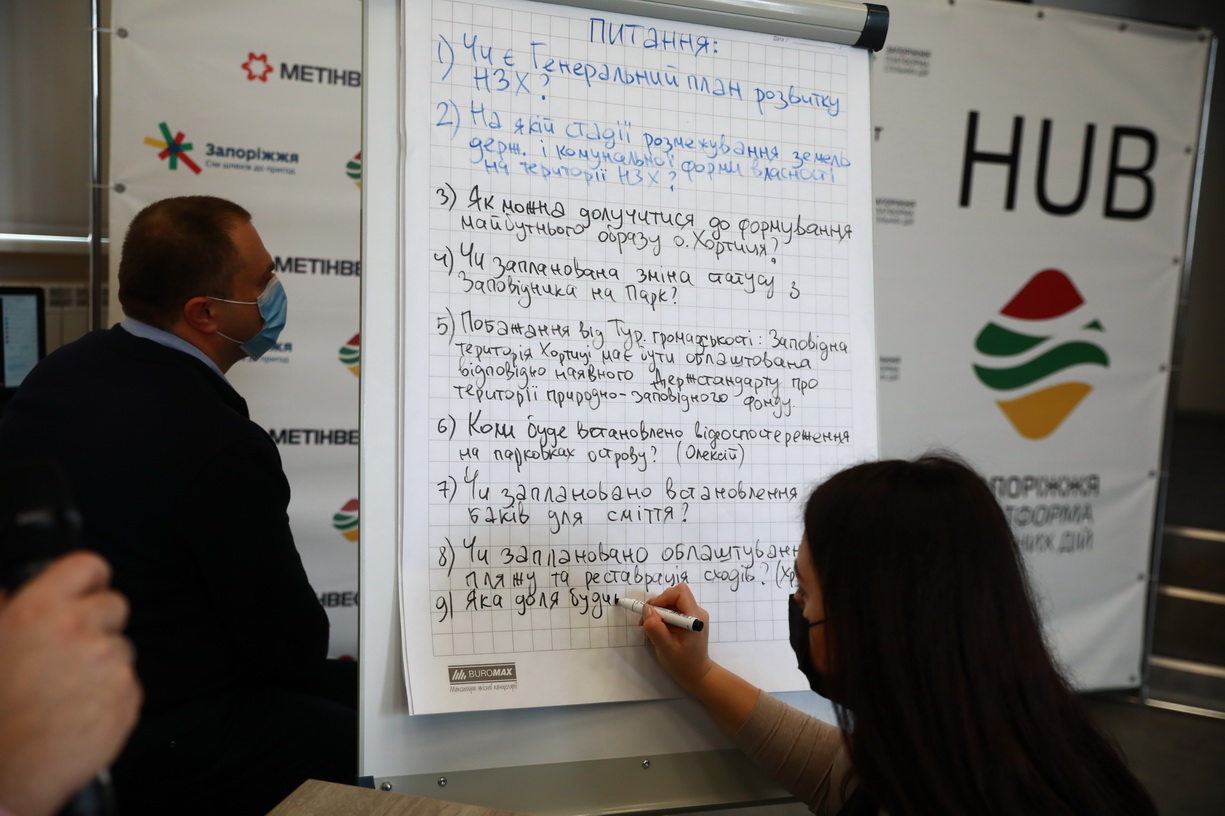 ПИТАННЯ:
1) Чи є Генеральний план розвитку
НЗХ?
2) На якій стадії розмежування земель
держ. і комунальної форми власності
на території НЗХ?
3) Як можна долучитися до формування
майбутнього образу о. Хортиця?
4) Чи запланована зміна статусу з
Заповідника на Парк?
5) Побажання від Тур. громадськості: Заповідна
територія Хортиці має бути облаштована
відповідно наявного Держстандарту про
території природно-заповідного фонду.
6) Коли буде встановлено відеоспостереження
на парковках острову? (Олексій)
7) Чи заплановано встановлення
баків для сміття?
8) Чи заплановано облаштуванн
пляжу та реставрація сходів? (Хр
9) Яка доля будин
BUROMAX
МЕТІНВ
Запоріжжя
Сім шляхів до пригод
МЕТІНВЕ
МЕТІНВЕ
ІНВЕС
HUB
ПОРІЖЖЯ
ТФОРМА
НИХ ДІЙ